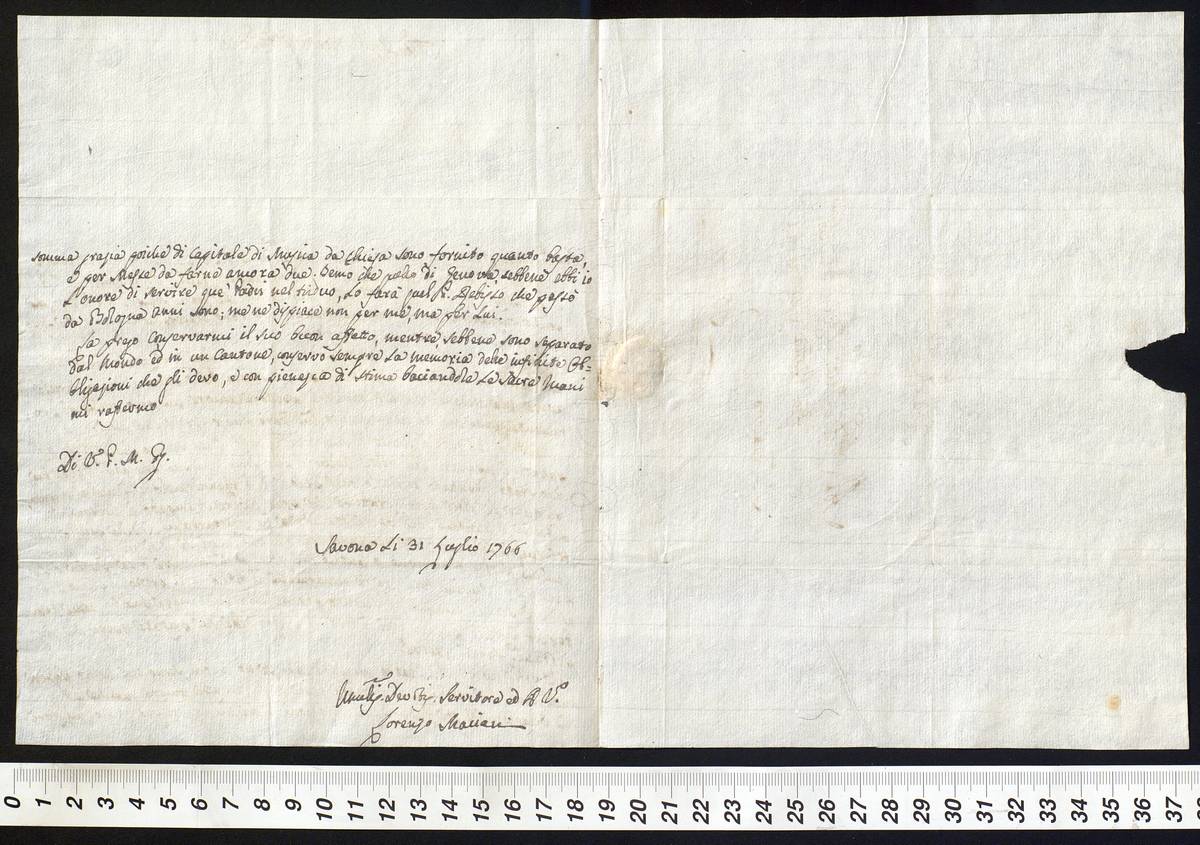 somma grazia poiche di Capitale di Musica da Chiesa sono fornito quanto basta,
e per Messe da farne ancora due. Temo che quello di Genova, sebbene ebbi io
l'onore di servire que' Padri nel triduo, lo farà quel P. che passò
da Bologna anni sono; me ne dispiace non per me, ma per Lui.
La prego conservarmi il suo buon affetto, mentre, sebbene sono separato
dal Mondo ed in un Cantone, conservo sempre la memoria delle infinite Ob=
bligazioni che gli devo, e con pienezza di stima baciandole le Sacre Mani
mi raffermo
Di V. P. M. R.
Savona li 31 Luglio 1766
Umilis. Devotis. Servitore ed
Lorenzo Mariani
0 1 2 3 4 5 6 7 8 9 10 11 12 13 14 15 16 17 18 19 20 21 22 23 24 25 26 27 28 29 30 31 32 33 34 35 36 37